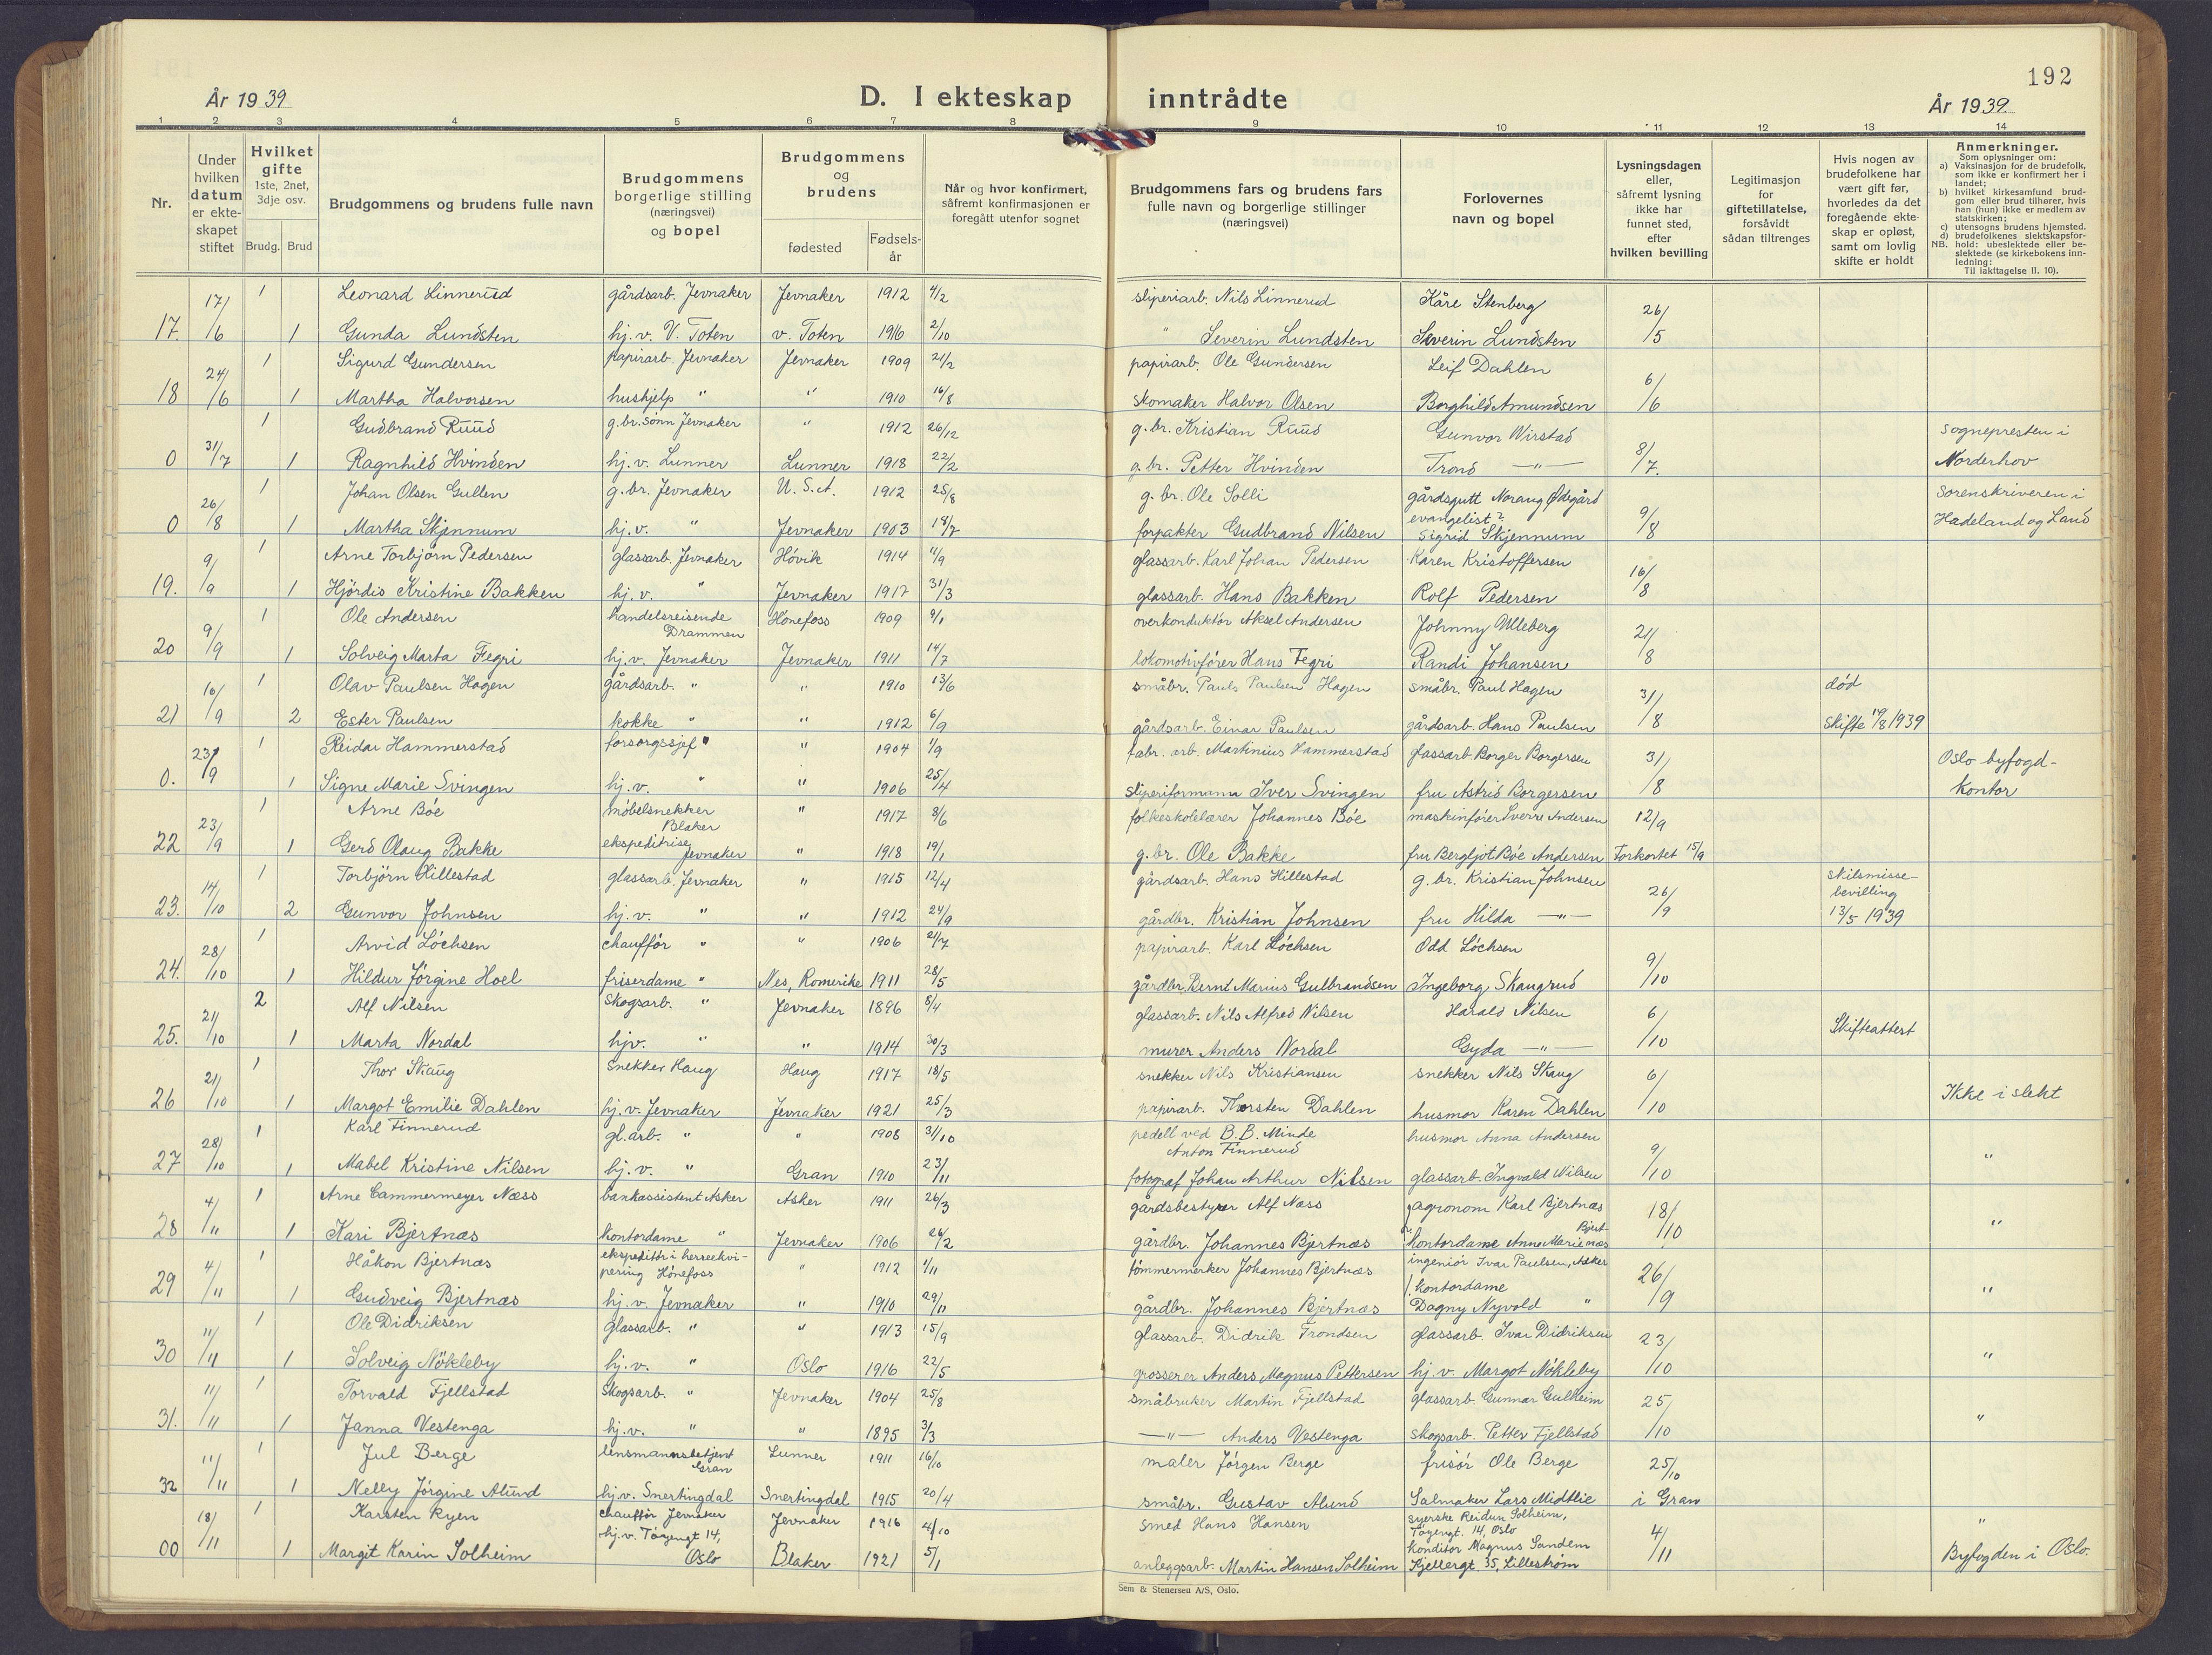 192
År 1939
D. I ekteskap inntrådte
År 1939.
1 2 3 4 5 6 7 8 9 10 11 12 13 14
Nr.
Under hvilken datum er ekteskapet stiftet
Hvilket gifte 1ste, 2net, 3dje osv.
Brudg. Brud
Brudgommens og brudens fulle navn
Brudgommens borgerlige stilling (næringsvei) og bopel
Brudgommens og brudens
fødested
Fødselsår
Når og hvor konfirmert, såfremt konfirmasjonen er foregått utenfor sognet
Brudgommens fars og brudens fars fulle navn og borgerlige stillinger (næringsvei)
Forlovernes navn og bopel
Lysningsdagen eller, såfremt lysning ikke har funnet sted, efter hvilken bevilling
Legitimasjon for giftetillatelse, forsåvidt sådan tiltrenges
Hvis nogen av brudefolkene har vært gift før, hvorledes da det foregående ekteskap er opløst, samt om lovlig skifte er holdt
Anmerkninger.
Som oplysninger om:
a) Vaksinasjon for de brudefolk, som ikke er konfirmert her i landet;
b) hvilket kirkesamfund brudgom eller brud tilhører, hvis han (hun) ikke er medlem av statskirken;
c) utensogns brudens hjemsted.
d) brudefolkenes slektskapsforhold: ubeslektede eller beslektede (se kirkebokens innledning:
NB.
Til iakttagelse II. 10).
17/ 1 Leonard Linnerud gårdsarb. Jevnaker Jevnaker 1912 4/2 sliperiarb. Nils Linnerud Kåre Stenberg 26/
17. /6 1 Gunda Lundsten hj. v. V. Toten v. Toten 1916 2/10 " Severin Lundsten Severin Lundsten /5
24/ 1 Sigurd Gundersen papirarb. Jevnaker Jevnaker 1909 21/2 papirarb. Ole Gundersen Leif Dahlen 6/
18 /6 1 Martha Halvorsen hushjelp " " 1910 16/8 skomaker Halvor Olsen Borghild Amundsen /6
1 Gudbrand Ruud g.br.sønn Jevnaker " 1912 26/12 g.br. Kristian Ruud Gunvor Wirstad 8/ Sognepresten i
0 31/7 1 Ragnhild Hvinden hj.v. Lunner Lunner 1918 22/2 g.br. Petter Hvinden Trond —"— /7. Norderhov
26/ 1 Johan Olsen Gullen g.br. Jevnaker U.S.A. 1912 25/8 g.br. Ole Solli gårdsgutt Noraug Ødegård Sorenskriveren i
evangelist?
0 /8 1 Martha Skjennum hj.v. " Jevnaker 1903 14/7 forpakter Gudbrand Nilsen Sigrid Skjennum 9/8 Hadeland og Land
9/ 1 Arne Torbjørn Pedersen glassarb. Jevnaker Høvik 1914 11/9 glassarb. Karl Johan Pedersen Karen Kristoffersen 16/
19. /9 1 Hjördis Kristine Bakken hj.v. " Jevnaker 1917 31/3 glassarb. Hans Bakken Rolf Pedersen /8
9/ 1 Ole Andersen handelsreisende Drammen Hønefoss 1909 9/1 overkonduktør Aksel Andersen Johnny Ulleberg 21/
20 /9 1 Solveig Marta Fegri hj.v. Jevnaker Jevnaker 1911 14/7 lokomotivfører Hans Fegri Randi Johansen /8
16/ 1 Olav Paulsen Hagen gårdsarb. " " 1910 13/6 småbr. Pauls Paulsen Hagen småbr. Paul Hagen 31/ död
21 /9 2 Ester Paulsen kokke " " 1912 6/9 gårdsarb. Einar Paulsen gårdsarb. Hans Paulsen /8 Skifte 19/8 1939
23/ 1 Reidar Hammerstad forsorgssjef " " 1904 1/9 fabr. arb. Martinius Hammerstad glassarb. Borger Borgersen 31/ Oslo byfogd-
0. /9 1 Signe Marie Svingen hj.v. " " 1906 25/4 sliperiformann Iver Svingen fru Astrid Borgersen /8 kontor
23/ 1 Arne Böe møbelsnekker Blaker " 1917 3/6 folkeskolelærer Johannes Böe maskinfører Sverre Andersen 12/9
22 /9 1 Gerd Olaug Bakke ekspeditrise Jevnaker " 1918 19/1 g.br. Ole Bakke fru Bergljot Böe Andersen Forkortet 15/9
14/ 1 Torbjörn Hillestad glassarb. Jevnaker " 1915 12/4 gårdsarb. Hans Hillestad g.br. Kristian Johnsen 26/ Skilsmisse-
bevilling
23. /10 2 Gunvor Johnsen hj.v. " " 1912 24/9 gårdbr. Kristian Johnsen fru Hilda —"— /9 13/5 1939
28/ 1 Arvid Löchsen chauffør " " 1906 21/7 papirarb. Karl Löchsen Odd Löchsen 9/
24. /10 1 Hildur Jörgine Hoel friserdame " Nes, Romerike 1911 28/5 gårdbr. Bernt Marius Gulbrandsen Ingeborg Skaugrud /10
21/ 2 Alf Nilsen Skogsarb. " Jevnaker 1896 8/4 glassarb. Nils Alfred Nilsen Harald Nilsen 6 Skifteattest
25. /10 1 Marta Nordal hjv. " " 1914 30/3 murer Anders Nordal Gyda —"— /10
21/ 1 Thor Skaug Snekker Haug Haug 1917 18/5 snekker Nils Kristiansen snekker Nils Skaug 6/
26 /10 1 Margot Emilie Dahlen hj.v. Jevnaker Jevnaker 1921 25/3 papirarb. Thorsten Dahlen husmor Karen Dahlen /10 Ikke i slekt
28/ 1 Karl Finnerud gl.arb. " " 1908 31/10 pedell ved B.B. Minde husmor Anna Andersen 9/
Anton Finnerud
27 /10 1 Mabel Kristine Nilsen hj.v. " Gran 1910 23/11 fotograf Johan Arthur Nilsen glassarb. Ingvald Nilsen /10 "
4/ 1 Arne Cammermeyer Næss bankassistent Asker Asker 1911 26/3 gårdsbestyrer Alf Næss agronom Karl Bjertnæs 18/
28 /11 1 Kari Bjertnæs Kontordame " Jevnaker 1906 26/2 gårdbr. Johannes Bjertnæs kontordame Anne Marie Bjertnæs /10 "
4/ 1 Håkon Bjertnæs ekspeditör i herreekvipering Hönefoss " 1912 1/11 tömmermerker Johannes Bjertnæs ingeniör Ivar Paulsen, Asker 26/
29 /11 1 Gudveig Bjertnæs hj.v. Jevnaker " 1910 29/11 gårdbr. Johannes Bjertnæs kontordame Dagny Nyvold " /9 "
11/ 1 Ole Didriksen glassarb. " " 1913 15/9 glassarb. Didrik Trondsen glassarb. Ivar Didriksen 23/
30 /11 1 Solveig Nökleby hj.v. " Oslo 1916 22/5 grosserer Anders Magnus Pettersen hj.v. Margot Nökleby /10 "
11/ 1 Torvald Fjellstad Skogsarb. " Jevnaker 1904 25/8 småbruker Martin Fjellstad glassarb. Gunnar Gulheim 25/
31. /11 1 Janna Vestenga hj.v. " " 1895 3/3 —"— Anders Vestenga skogsarb. Petter Fjellstad /10 "
11/ 1 Jul Berge lensmannsbetjent Gran Lunner 1911 16/10 maler Jörgen Berge frisör Ole Berge 25/10
32 /11 1 Nelly Jörgine Alund hj.v. Snertingdal Snertingdal 1915 20/4 småbr. Gustav Alund Salmaker Lars Midtlie i Gran
18/ 1 Karsten Ryen chauffør Jevnaker Jevnaker 1916 4/10 smed Hans Hansen syerske Reidun Solheim, Töyengt. 14, Oslo 4/ "
00 /11 1 Margit Karin Solheim hj.v. Töyengt 14, Oslo Blaker 1921 5/1 anleggsarb. Martin Hansen Solheim Konditor Magnus Sandem Kjellergt 35, Lilleström /11 Byfogden i Oslo.
Sem & Stenersen A/S, Oslo.